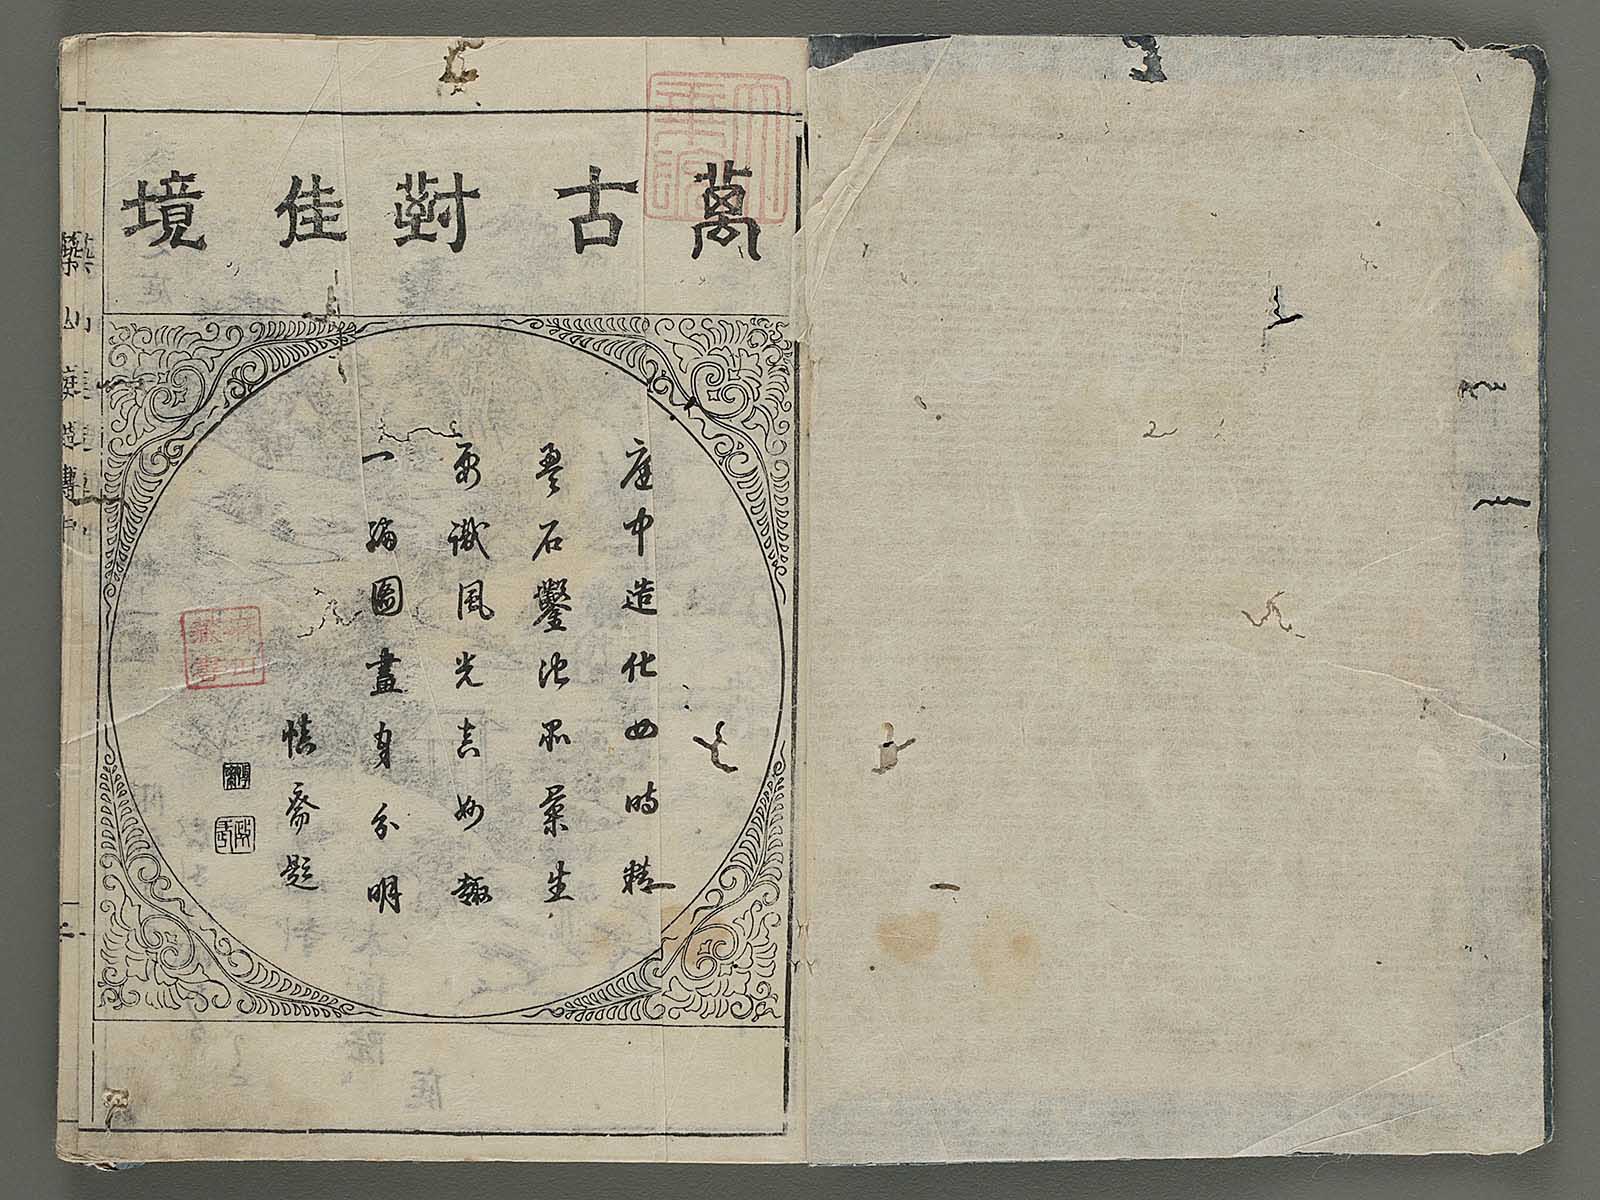 萬古對佳境
庭中造化四時
疊石鑿池眾景生
要識風光真妙趣
一編圖畫自分明
慎齋題
築山庭造傳